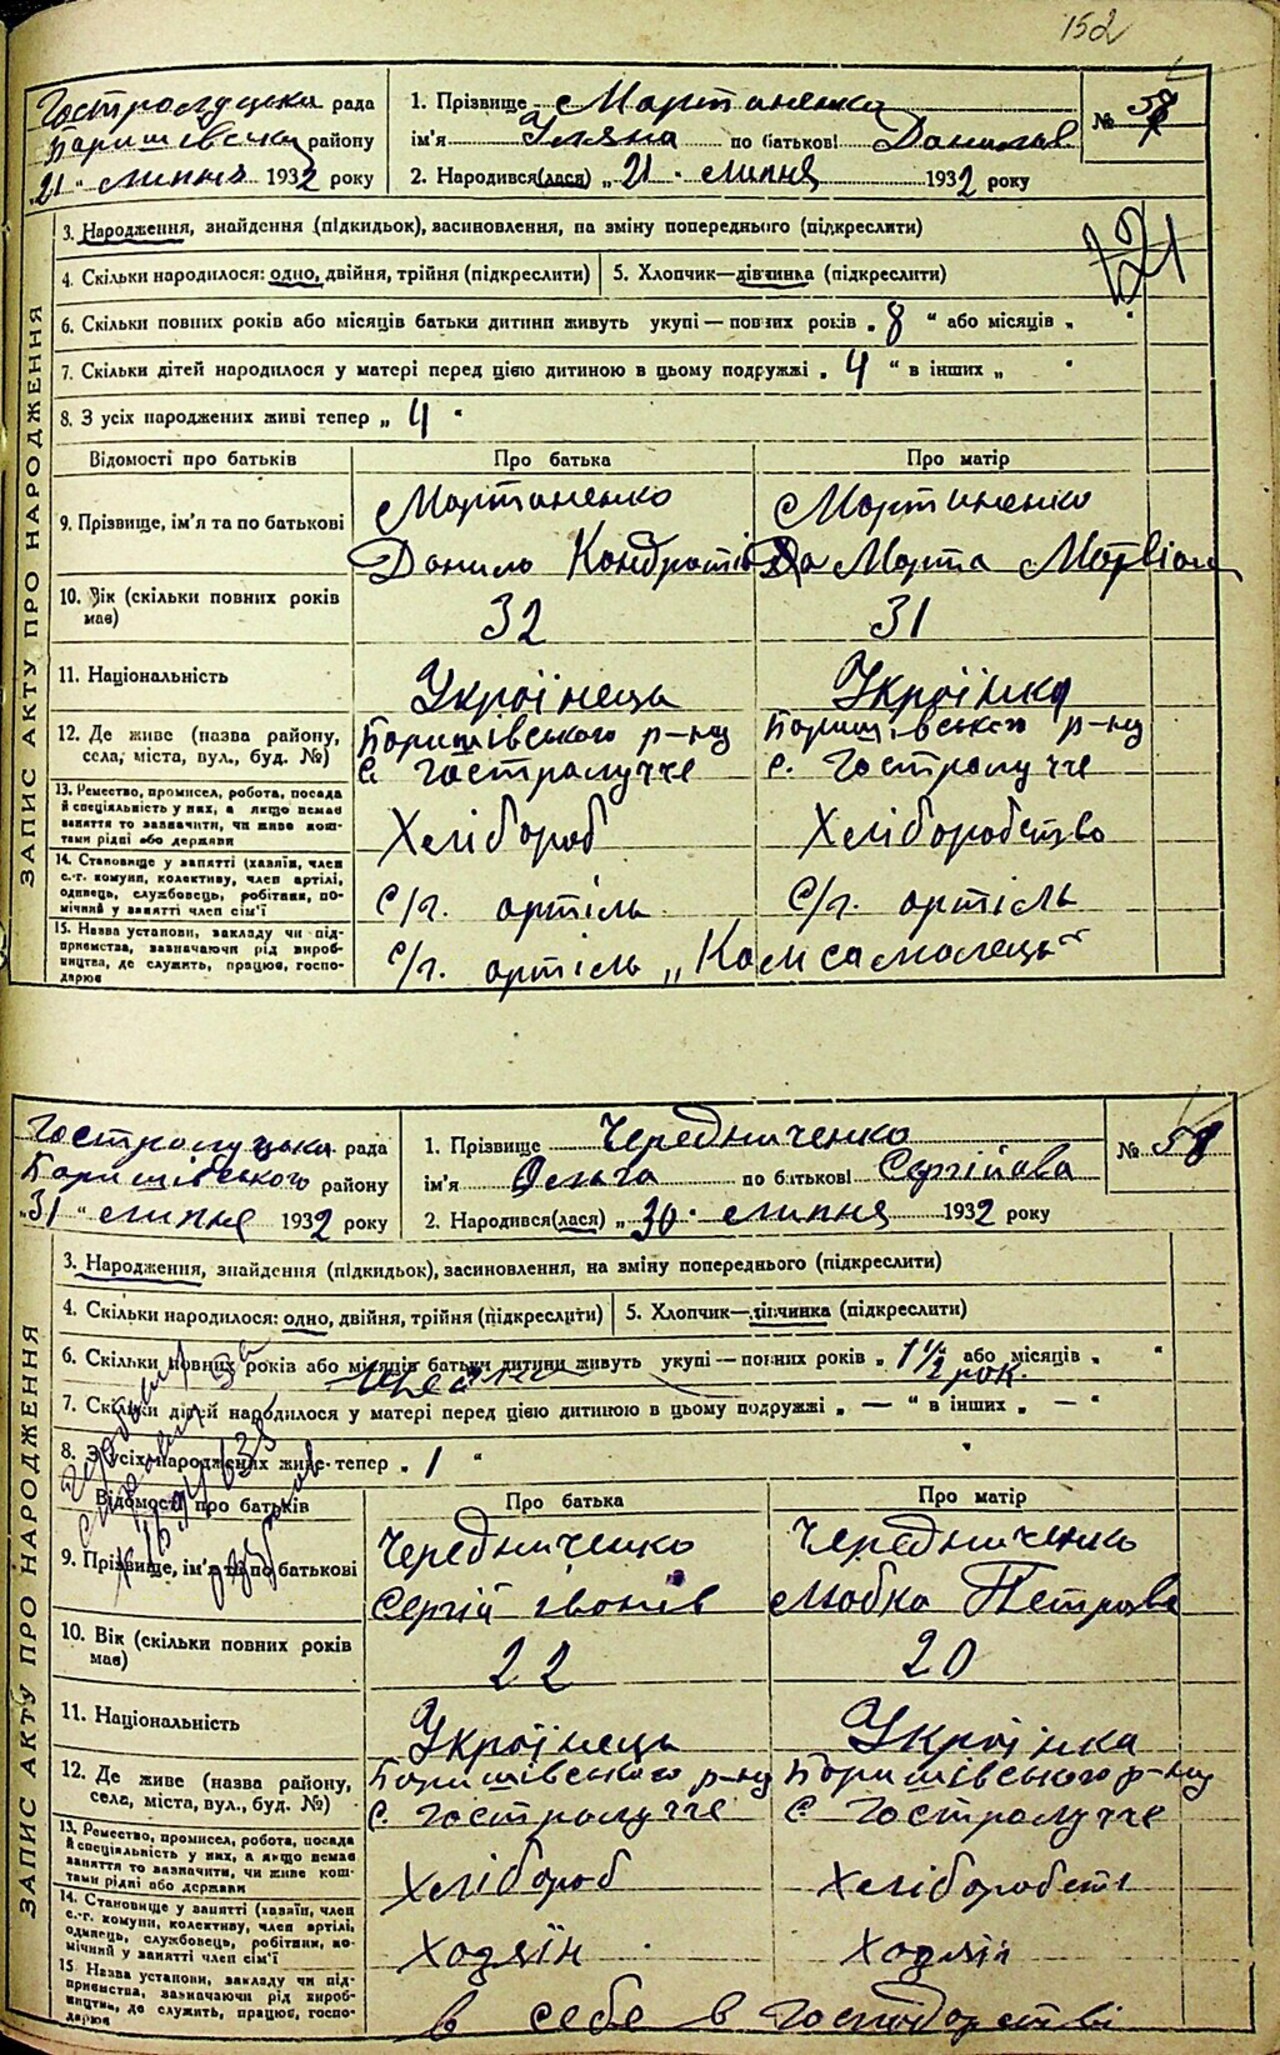 152
Гостролуцька рада
Баришівськ району
„21" липня 1932 року
1. Прізвище Мартиненко
ім'я Уляна по батькові Данилів.
2. Народився(лася) „21" липня 1932 року
№ 57
ЗАПИС АКТУ ПРО НАРОДЖЕННЯ
3. Народження, знайдення (підкидьок), засиновлення, на зміну попереднього (підкреслити)
4. Скільки народилося: одно, двійня, трійня (підкреслити) 5. Хлопчик—дівчинка (підкреслити)
6. Скільки повних років або місяців батьки дитини живуть укупі — повних років „8" або місяців „ "
7. Скільки дітей народилося у матері перед цією дитиною в цьому подружжі „4" в інших „ "
8. З усіх народжених живі тепер „4"
Відомості про батьків Про батька Про матір
9. Прізвище, ім'я та по батькові
Мартиненко Мартиненко
Данило Кондратів Марта
10. Вік (скільки повних років має)
32 31
11. Національність
Українець Українка
12. Де живе (назва району, села, міста, вул., буд. №)
Баришівського р-ну Баришівського р-ну
с. Гостролуччє с. Гостролуччє
13. Ремество, промисел, робота, посада
й спеціяльність у них, а якщо немає
заняття то зазначити, чи живе кош-
тами рідні або держави
Хлібороб Хліборобство
14. Становище у занятті (хазяїн, член
с.-г. комуни, колективу, член артілі,
одинець, службовець, робітник, по-
мічний у занятті член сім'ї
с/г. артіль с/г. артіль
15. Назва установи, закладу чи під-
приємства, зазначаючи рід вироб-
ництва, де служить, працює, госпо-
дарює
с/г. артіль „Комсамолець"
Гостролуцька рада
Баришівського району
„31" липня 1932 року
1. Прізвище Чередниченко
ім'я Ольга по батькові Сергійова
2. Народився(лася) „30" липня 1932 року
№ 58
ЗАПИС АКТУ ПРО НАРОДЖЕННЯ
3. Народження, знайдення (підкидьок), засиновлення, на зміну попереднього (підкреслити)
4. Скільки народилося: одно, двійня, трійня (підкреслити) 5. Хлопчик—дівчинка (підкреслити)
6. Скільки повних років або місяців батьки дитини живуть укупі — повних років „1½ або місяців „ "
рок.
7. Скільки дітей народилося у матері перед цією дитиною в цьому подружжі „ — " в інших „ — "
8. З усіх народжених живе тепер „1"
Відомості про батьків Про батька Про матір
9. Прізвище, ім'я та по батькові
Чередниченко Чередниченко
Сергій Іванів Любка Петрова
10. Вік (скільки повних років має)
22 20
11. Національність
Українець Українка
12. Де живе (назва району, села, міста, вул., буд. №)
Баришівського р-ну Баришівського р-ну
с. Гостролуччє с. Гостролуччє
13. Ремество, промисел, робота, посада
й спеціяльність у них, а якщо немає
заняття то зазначити, чи живе кош-
тами рідні або держави
Хлібороб Хліборобств
14. Становище у занятті (хазяїн, член
с.-г. комуни, колективу, член артілі,
одинець, службовець, робітник, по-
мічний у занятті член сім'ї
Хозяїн Хозяїн
15 Назва установи, закладу чи під-
приємства, зазначаючи рід вироб-
ництва, де служить, працює, госпо-
дарює
в себе в господарстві